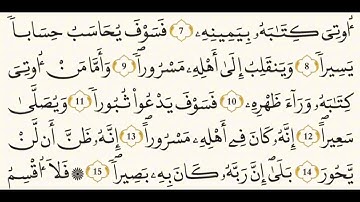 ا۟وتِيَ كِتَٰبَهُۥ بِيَمِينِهِۦ ٧ فَسَوْفَ يُحَاسَبُ حِسَاباٗ
يَسِيراٗ ٨ وَيَنقَلِبُ إِلَىٰٓ أَهْلِهِۦ مَسْرُوراٗ ٩ وَأَمَّا مَنُ ا۟وتِيَ
كِتَٰبَهُۥ وَرَآءَ ظَهْرِهِۦ ١٠ فَسَوْفَ يَدْعُوا۟ ثُبُوراٗ ١١ وَيُصَلَّىٰ
سَعِيراً ١٢ اِنَّهُۥ كَانَ فِےٓ أَهْلِهِۦ مَسْرُوراً ١٣ اِنَّهُۥ ظَنَّ أَن لَّنْ
يَّحُورَ ١٤ بَلَىٰٓ إِنَّ رَبَّهُۥ كَانَ بِهِۦ بَصِيراٗ ١٥ ۞ فَلَآ أُقْسِمُ